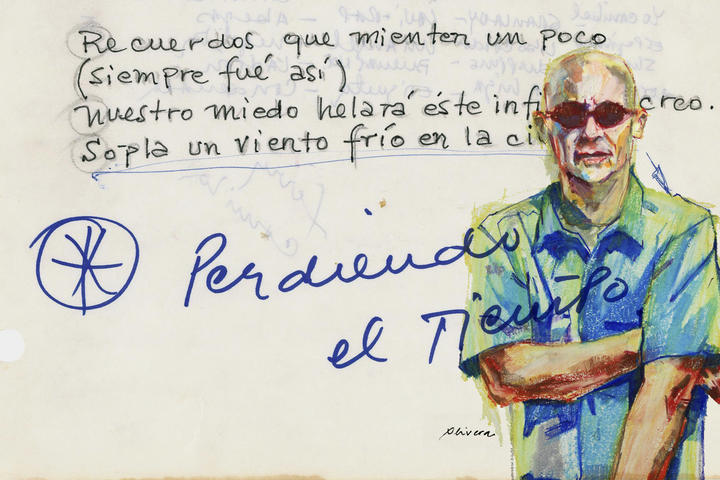 Recuerdos que mienten un poco
(siempre fué así)
nuestro miedo helará éste infi creo.
Sopla un viento frío en la ci
Perdiendo
el Tiempo
Olivera